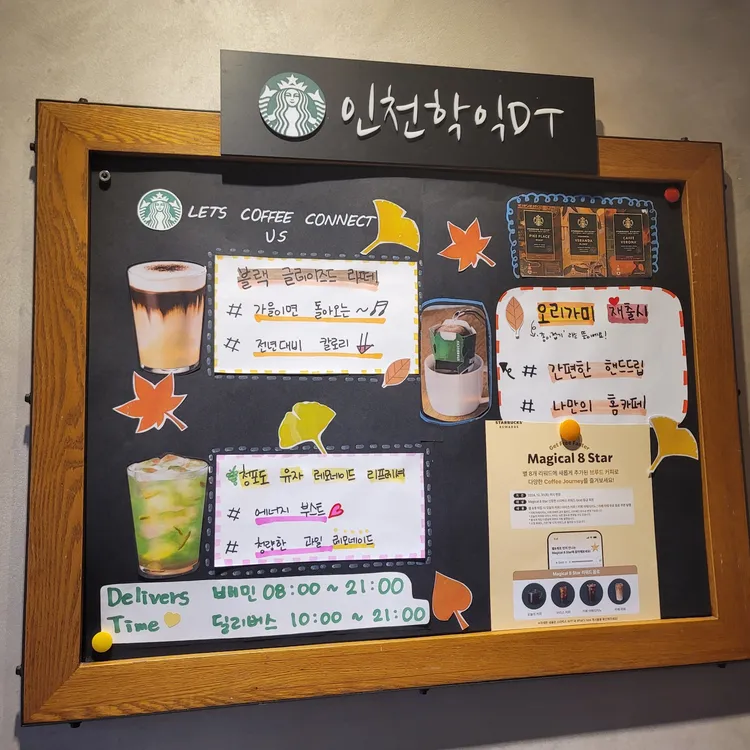 인천학익DT
LETS COFFEE CONNECT
US
블랙 글레이즈드 라떼
# 가을이면 돌아오는 ~
# 전년대비 칼로리 ↓
청포도 유자 레모네이드 리프레셔
# 에너지 부스트
# 청량한 과일 레모네이드
Delivers 배민 08:00 ~ 21:00
Time 딜리버스 10:00 ~ 21:00
PIKE PLACE
VERANDA
CAFFÈ
VERONA
오리가미 재출시
'종이접기' 라는 뜻이에요!
# 간편한 핸드드립
# 나만의 홈카페
STARBUCKS
REWARDS
Magical 8 Star
별 8개 리워드에 새롭게 추가된 브루드 커피로
다양한 Coffee Journey를 즐겨보세요!
Magical 8 Star 리워드 음료